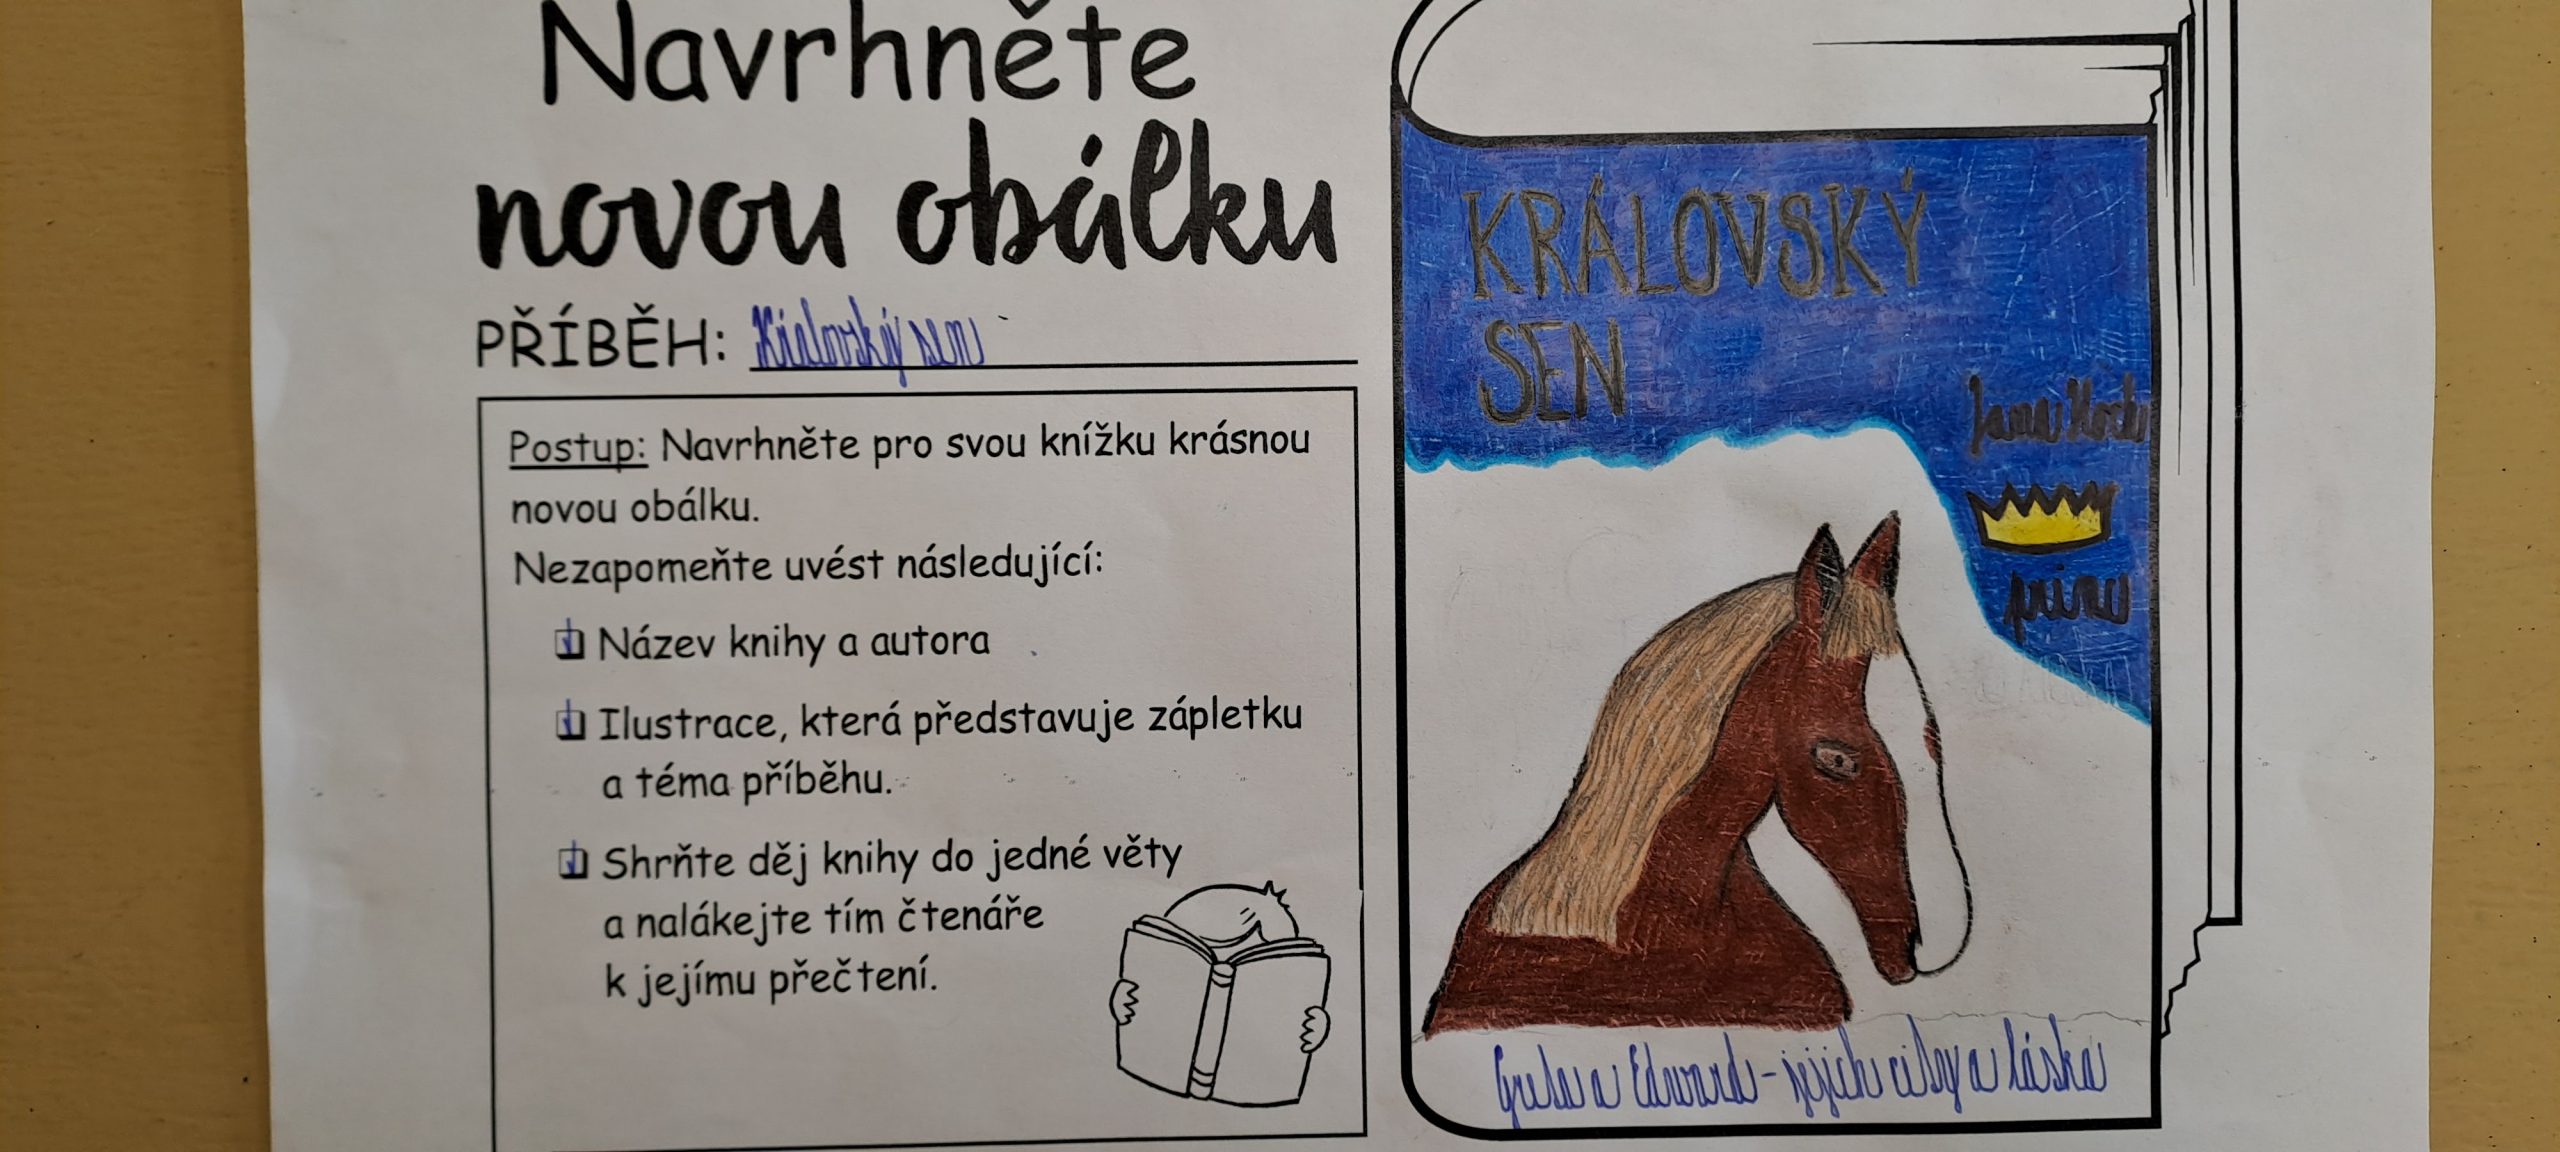 Navrhněte
novou obálku
PŘÍBĚH: Královský sen
Postup: Navrhněte pro svou knížku krásnou
novou obálku.
Nezapomeňte uvést následující:
Název knihy a autora
Ilustrace, která představuje zápletku
a téma příběhu.
Shrňte děj knihy do jedné věty
a nalákejte tím čtenáře
k jejímu přečtení.
KRÁLOVSKÝ
SEN
Jana
princ
a Edward - jejich city a láska